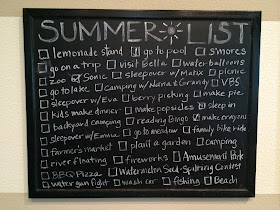 SUMMER LIST
lemonade stand go to pool S'mores
go on a trip visit Bella water balloons
zoo Sonic sleepover w/Matix picnic
go to lake camping w/Nana & Grande VBS
sleepover w/Eva berry picking make pie
kids make dinner make popsicles sleep in
backyard camping reading Bingo make crayons
sleepover w/Emma go to meadow family bike ride
farmer's market plant a garden camping
river floating fireworks Amusement Park
BBQ Pizza Watermelon Seed-Spitting Contest
water gun fight wash car fishing Beach